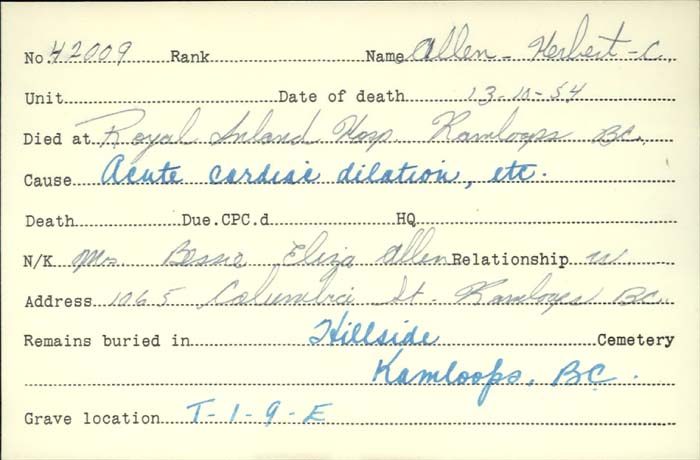 No. 42009 Rank Name Allen - Herbert - C.
Unit Date of death 13-10-54
Died at Royal Inland Hosp. Kamloops BC.
Cause Acute cardiac dilation, etc.
Death Due.CPC.d HQ
N/K Mrs. Bessie Eliza Allen Relationship w
Address 1065 Columbia St. Kamloops BC.
Remains buried in Hillside Cemetery
Kamloops, BC.
Grave location T-1-9-E